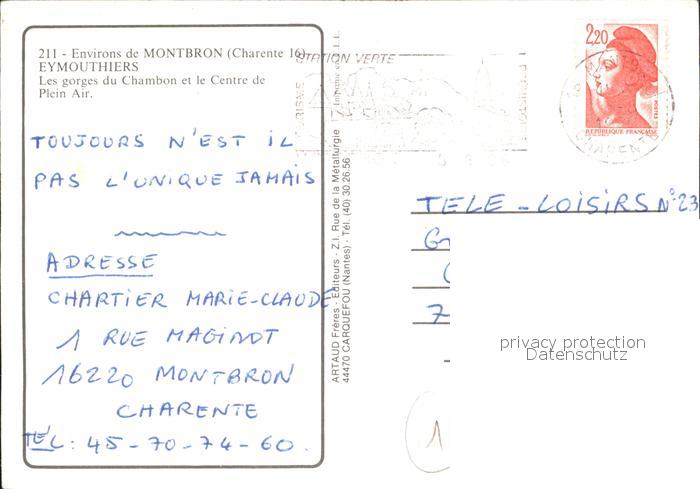 211 - Environs de MONTBRON (Charente 16)
EYMOUTHIERS
Les gorges du Chambon et le Centre de
Plein Air.
TOUJOURS N'EST IL
PAS L'UNIQUE JAMAIS
ADRESSE
CHARTIER MARIE-CLAUDE
1 RUE MAGINOT
16220 MONTBRON
CHARENTE
TÉL: 45-70-74-60.
ARTAUD Frères - Editeurs - Z.I. Rue de la Métallurgie
44470 CARQUEFOU (Nantes) - Tél. (40) 30.26.56
STATION VERTE
2,20
REPUBLIQUE FRANÇAISE
CHARENTE
TELE-LOISIRS N°23
G
7
privacy protection
Datenschutz
1